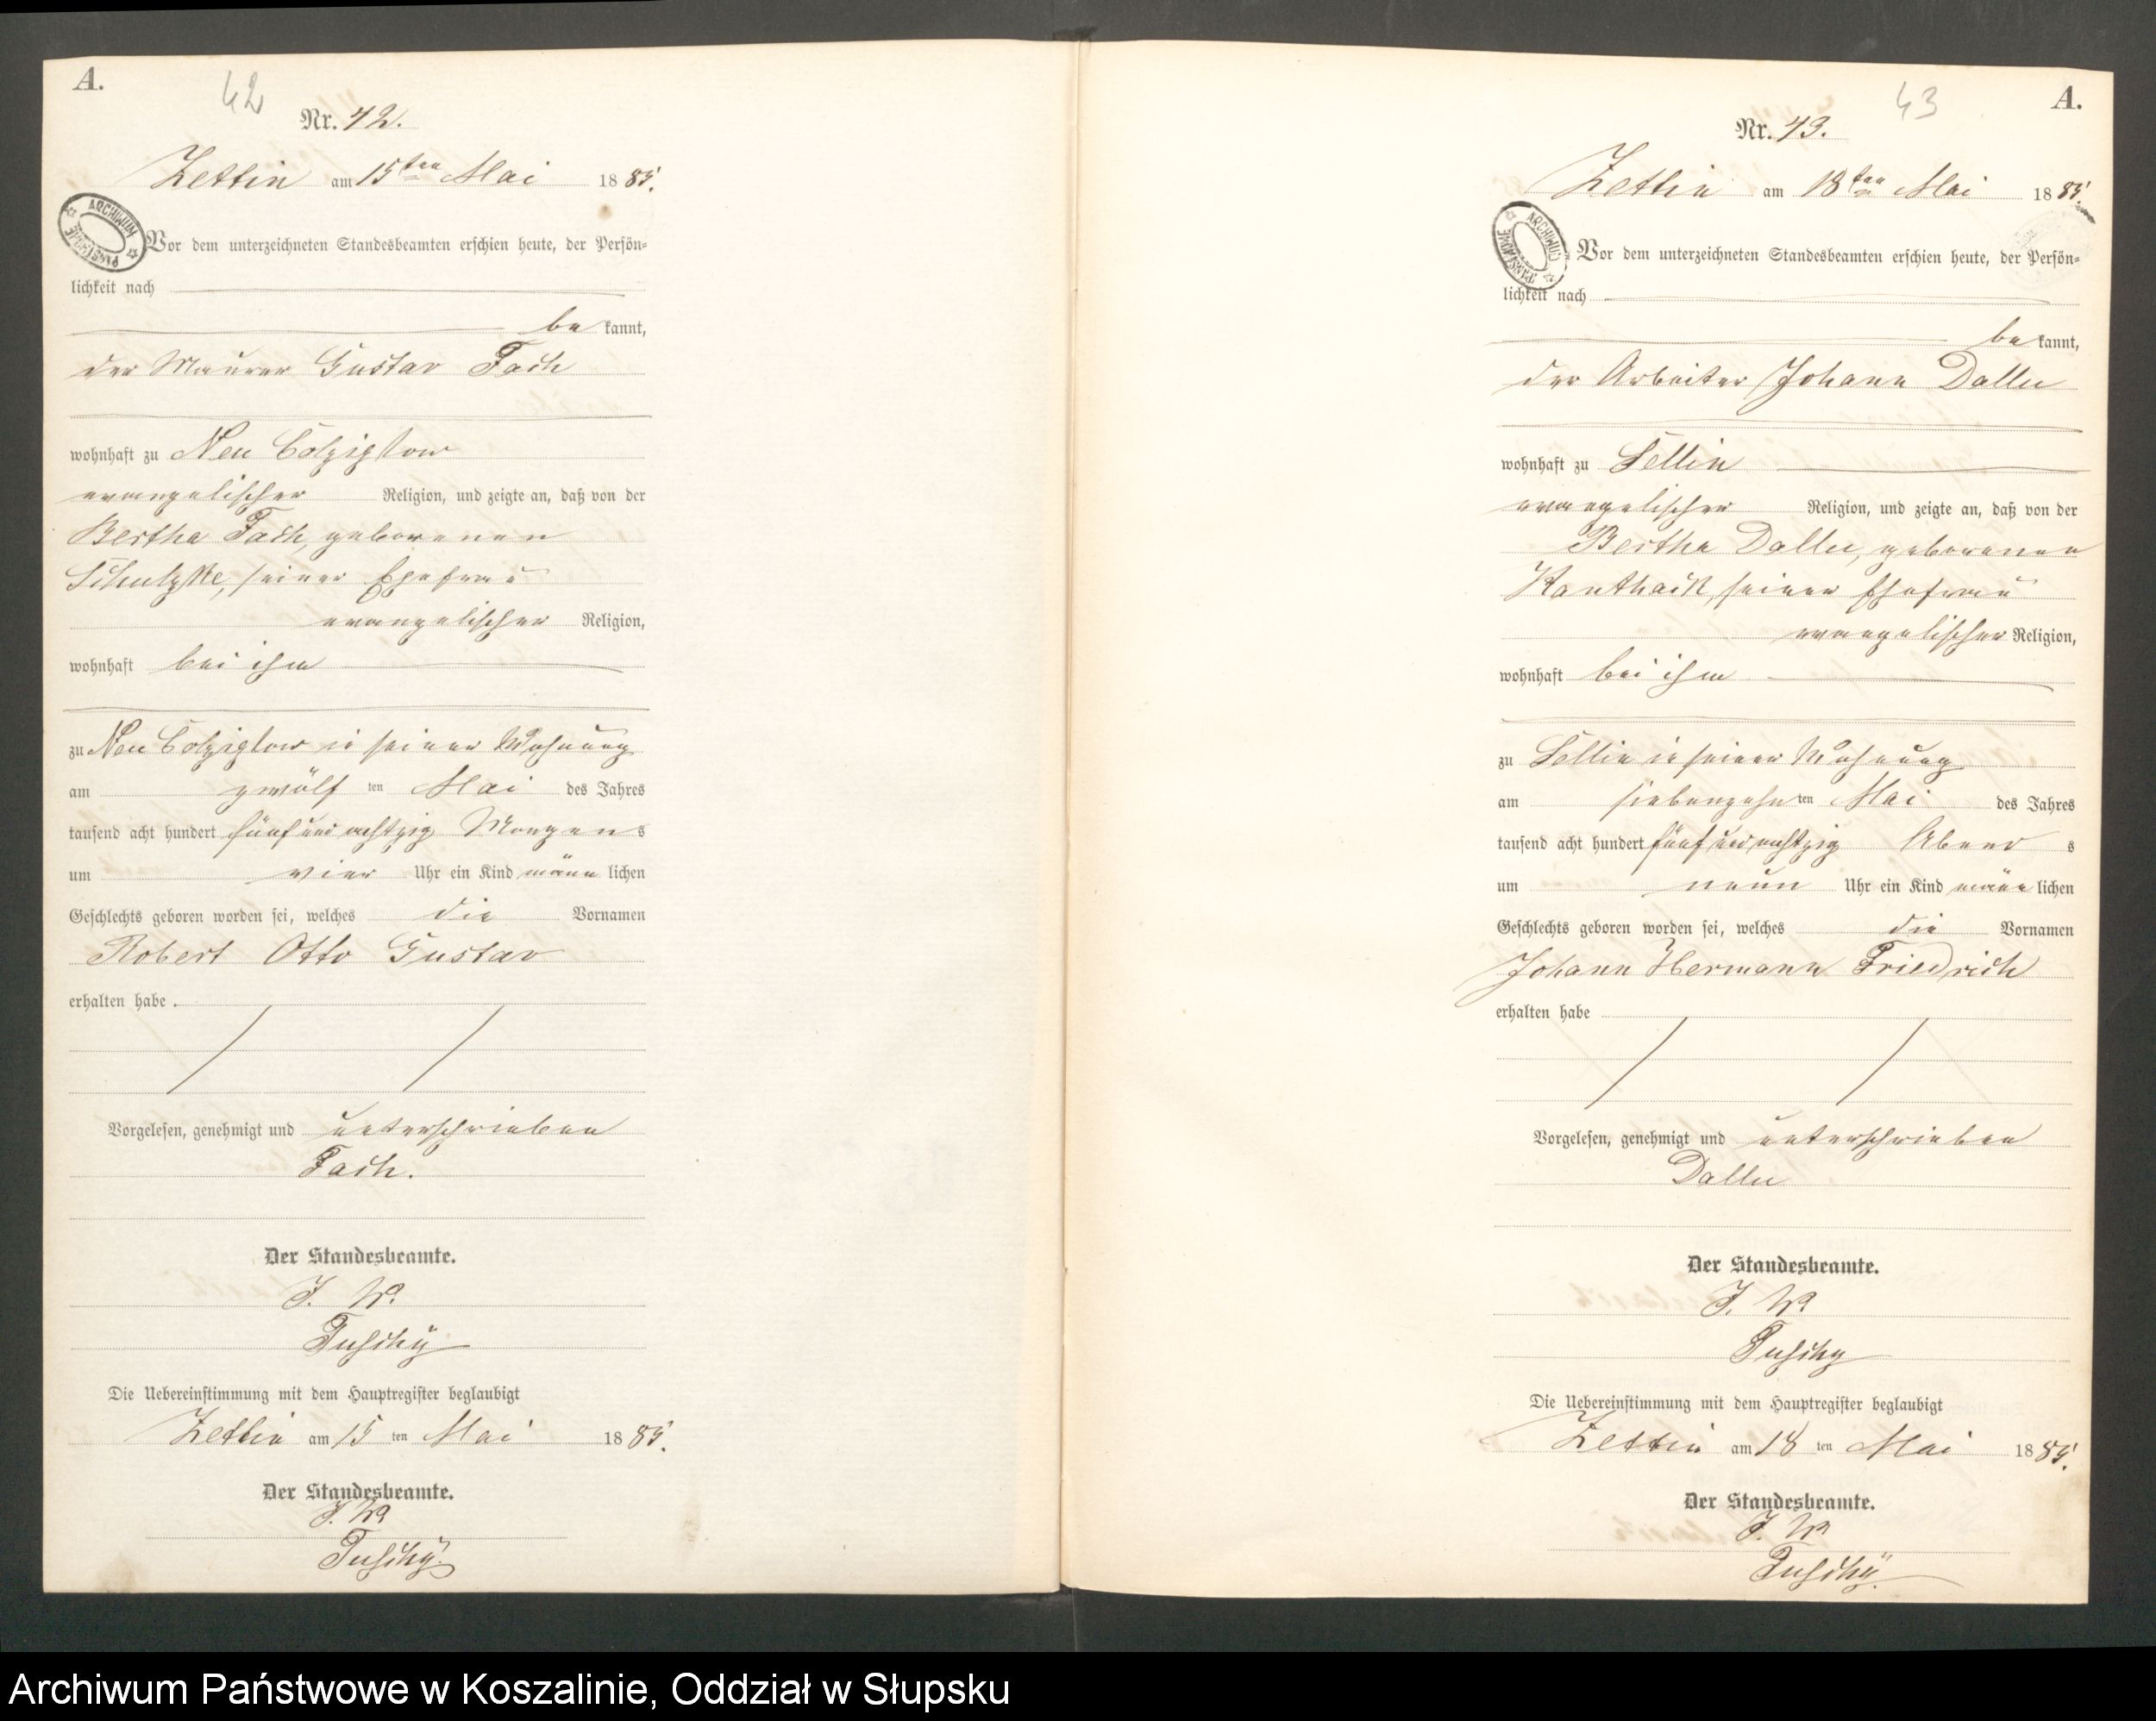 A.
42
Nr. 42.
Zettin am 15ten Mai 1885.
ARCHIWUM PAŃSTWOWE
Vor dem unterzeichneten Standesbeamten erschien heute, der Persön-
lichkeit nach
be kannt,
der Maurer Gustav Fach
wohnhaft zu Neu Colziglow
evangelischer Religion, und zeigte an, daß von der
Bertha Fach, geborenen
Schulzke, seiner Ehefrau
evangelischer Religion,
wohnhaft bei ihm
zu Neu Colziglow in seiner Wohnung
am zwölf ten Mai des Jahres
tausend acht hundert fünfundachtzig Morgens
um vier Uhr ein Kind männlichen
Geschlechts geboren worden sei, welches die Vornamen
Robert Otto Gustav
erhalten habe.
Vorgelesen, genehmigt und unterschrieben
Fach.
Der Standesbeamte.
J. V.
Die Uebereinstimmung mit dem Hauptregister beglaubigt
Zettin am 15 ten Mai 1885.
Der Standesbeamte.
J. V.
43
A.
Nr. 43.
Zettin am 18ten Mai 1885.
ARCHIWUM PAŃSTWOWE
Vor dem unterzeichneten Standesbeamten erschien heute, der Persön-
lichkeit nach
be kannt,
der Arbeiter Johann Dallu
wohnhaft zu Sellin
evangelischer Religion, und zeigte an, daß von der
Bertha Dallu, geborenen
Kanthack, seiner Ehefrau
evangelischer Religion,
wohnhaft bei ihm
zu Sellin in seiner Wohnung
am siebenzehn ten Mai des Jahres
tausend acht hundert fünfundachtzig Abend s
um neun Uhr ein Kind männlichen
Geschlechts geboren worden sei, welches die Vornamen
Johann Hermann Friedrich
erhalten habe
Vorgelesen, genehmigt und unterschrieben
Dallu
Der Standesbeamte.
J. V.
Die Uebereinstimmung mit dem Hauptregister beglaubigt
Zettin am 18 ten Mai 1885.
Der Standesbeamte.
J. V.
Archiwum Państwowe w Koszalinie, Oddział w Słupsku